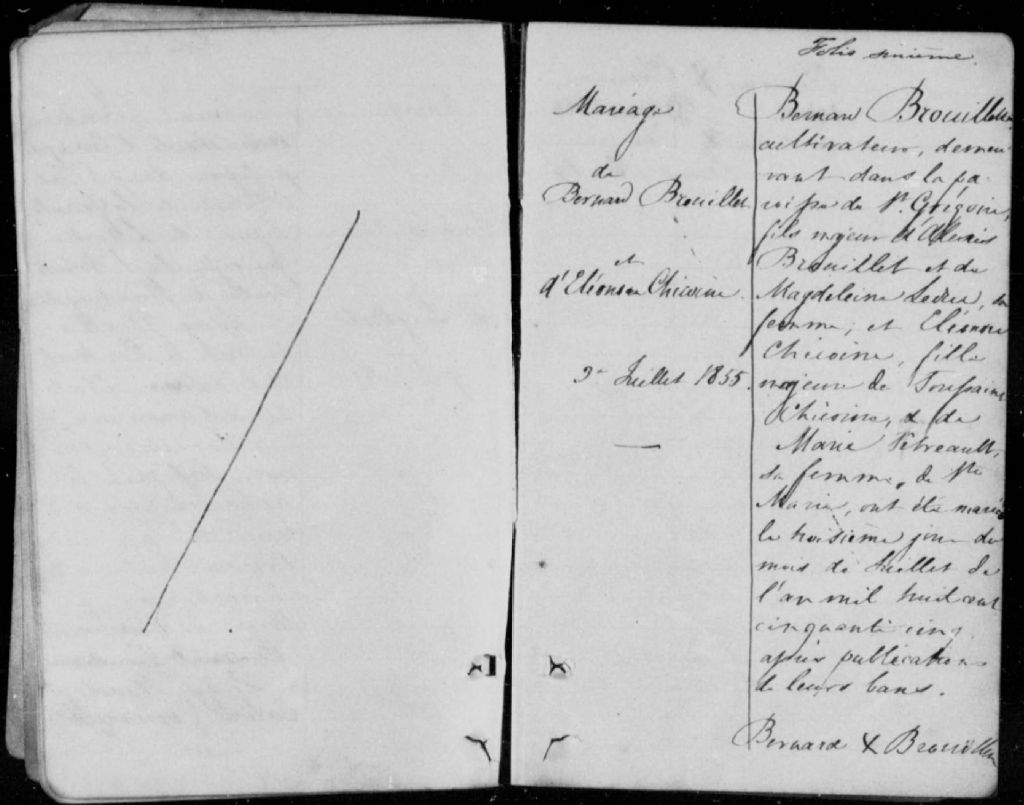 Folio sixième.
Mariage
de
Bernard Brouillet
et
d'Eléonore Chicoine.
3e Juillet 1855.
Bernard Brouillet
cultivateur, demeu-
rant dans la pa-
roisse de St. Grégoire,
fils majeur d'Alexis
Brouillet et de
Magdeleine Leduc, sa
femme; et Eléonore
Chicoine, fille
majeure de Toussaint
Chicoine, & de
Marie Tétreault,
sa femme, de Ste
Marie, ont été mariés
le troisième jour du
mois de Juillet de
l'an mil huit cent
cinquante cinq
après publications
de leurs bans.
Bernard X Brouillet